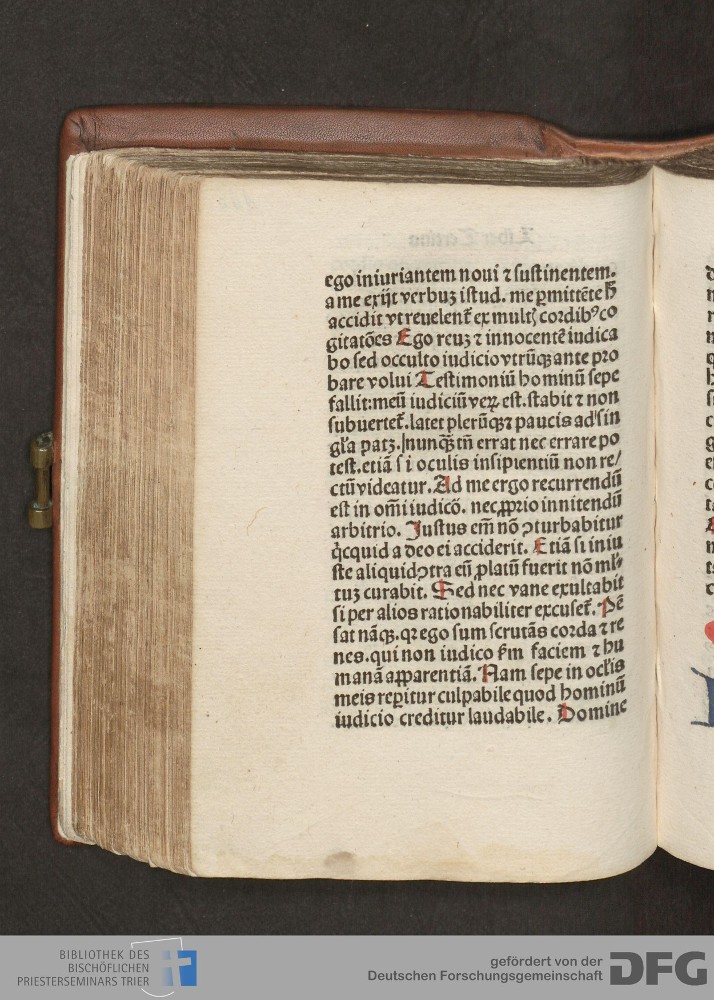 ego iniuriantem noui ⁊ sustinentem.
a me exijt verbuꝫ istud. me ꝑmittēte h̄
accidit vt reuelent᷑ ex multꝭ cordibꝰ co
gitatōes Ego reuꝫ ⁊ innocentē iudica
bo sed occulto iudicio vtrūqꝫ ante pro
bare volui Testimoniū hominū sepe
fallit: meū iudiciū veꝝ est. stabit ⁊ non
subuertet᷑. latet plerūqꝫ ⁊ paucis ad sin
gl̓a patꝫ. nunqꝫ tn̄ errat nec errare po
test. etiā si oculis insipientiū non re/
ctū videatur. Ad me ergo recurrendū
est in om̄i iudicō. nec ꝓprio innitendū
arbitrio. Justus em̄ nō ꝯturbabitur
q̇cquid a deo ei acciderit. Etiā si iniu
ste aliquid ꝯtra eū ꝓlatū fuerit nō ml̓
tuꝫ curabit. Sed nec vane exultabit
si per alios rationabiliter excuset᷑. Pē
sat nāqꝫ. qꝛ ego sum scrutās corda ⁊ re
nes. qui non iudico ẜm faciem ⁊ hu
manā apparentiā. Nam sepe in ocl̓is
meis reꝑitur culpabile quod hominū
iudicio creditur laudabile. Domine
BIBLIOTHEK DES
BISCHÖFLICHEN
PRIESTERSEMINARS TRIER
gefördert von der
Deutschen Forschungsgemeinschaft
DFG